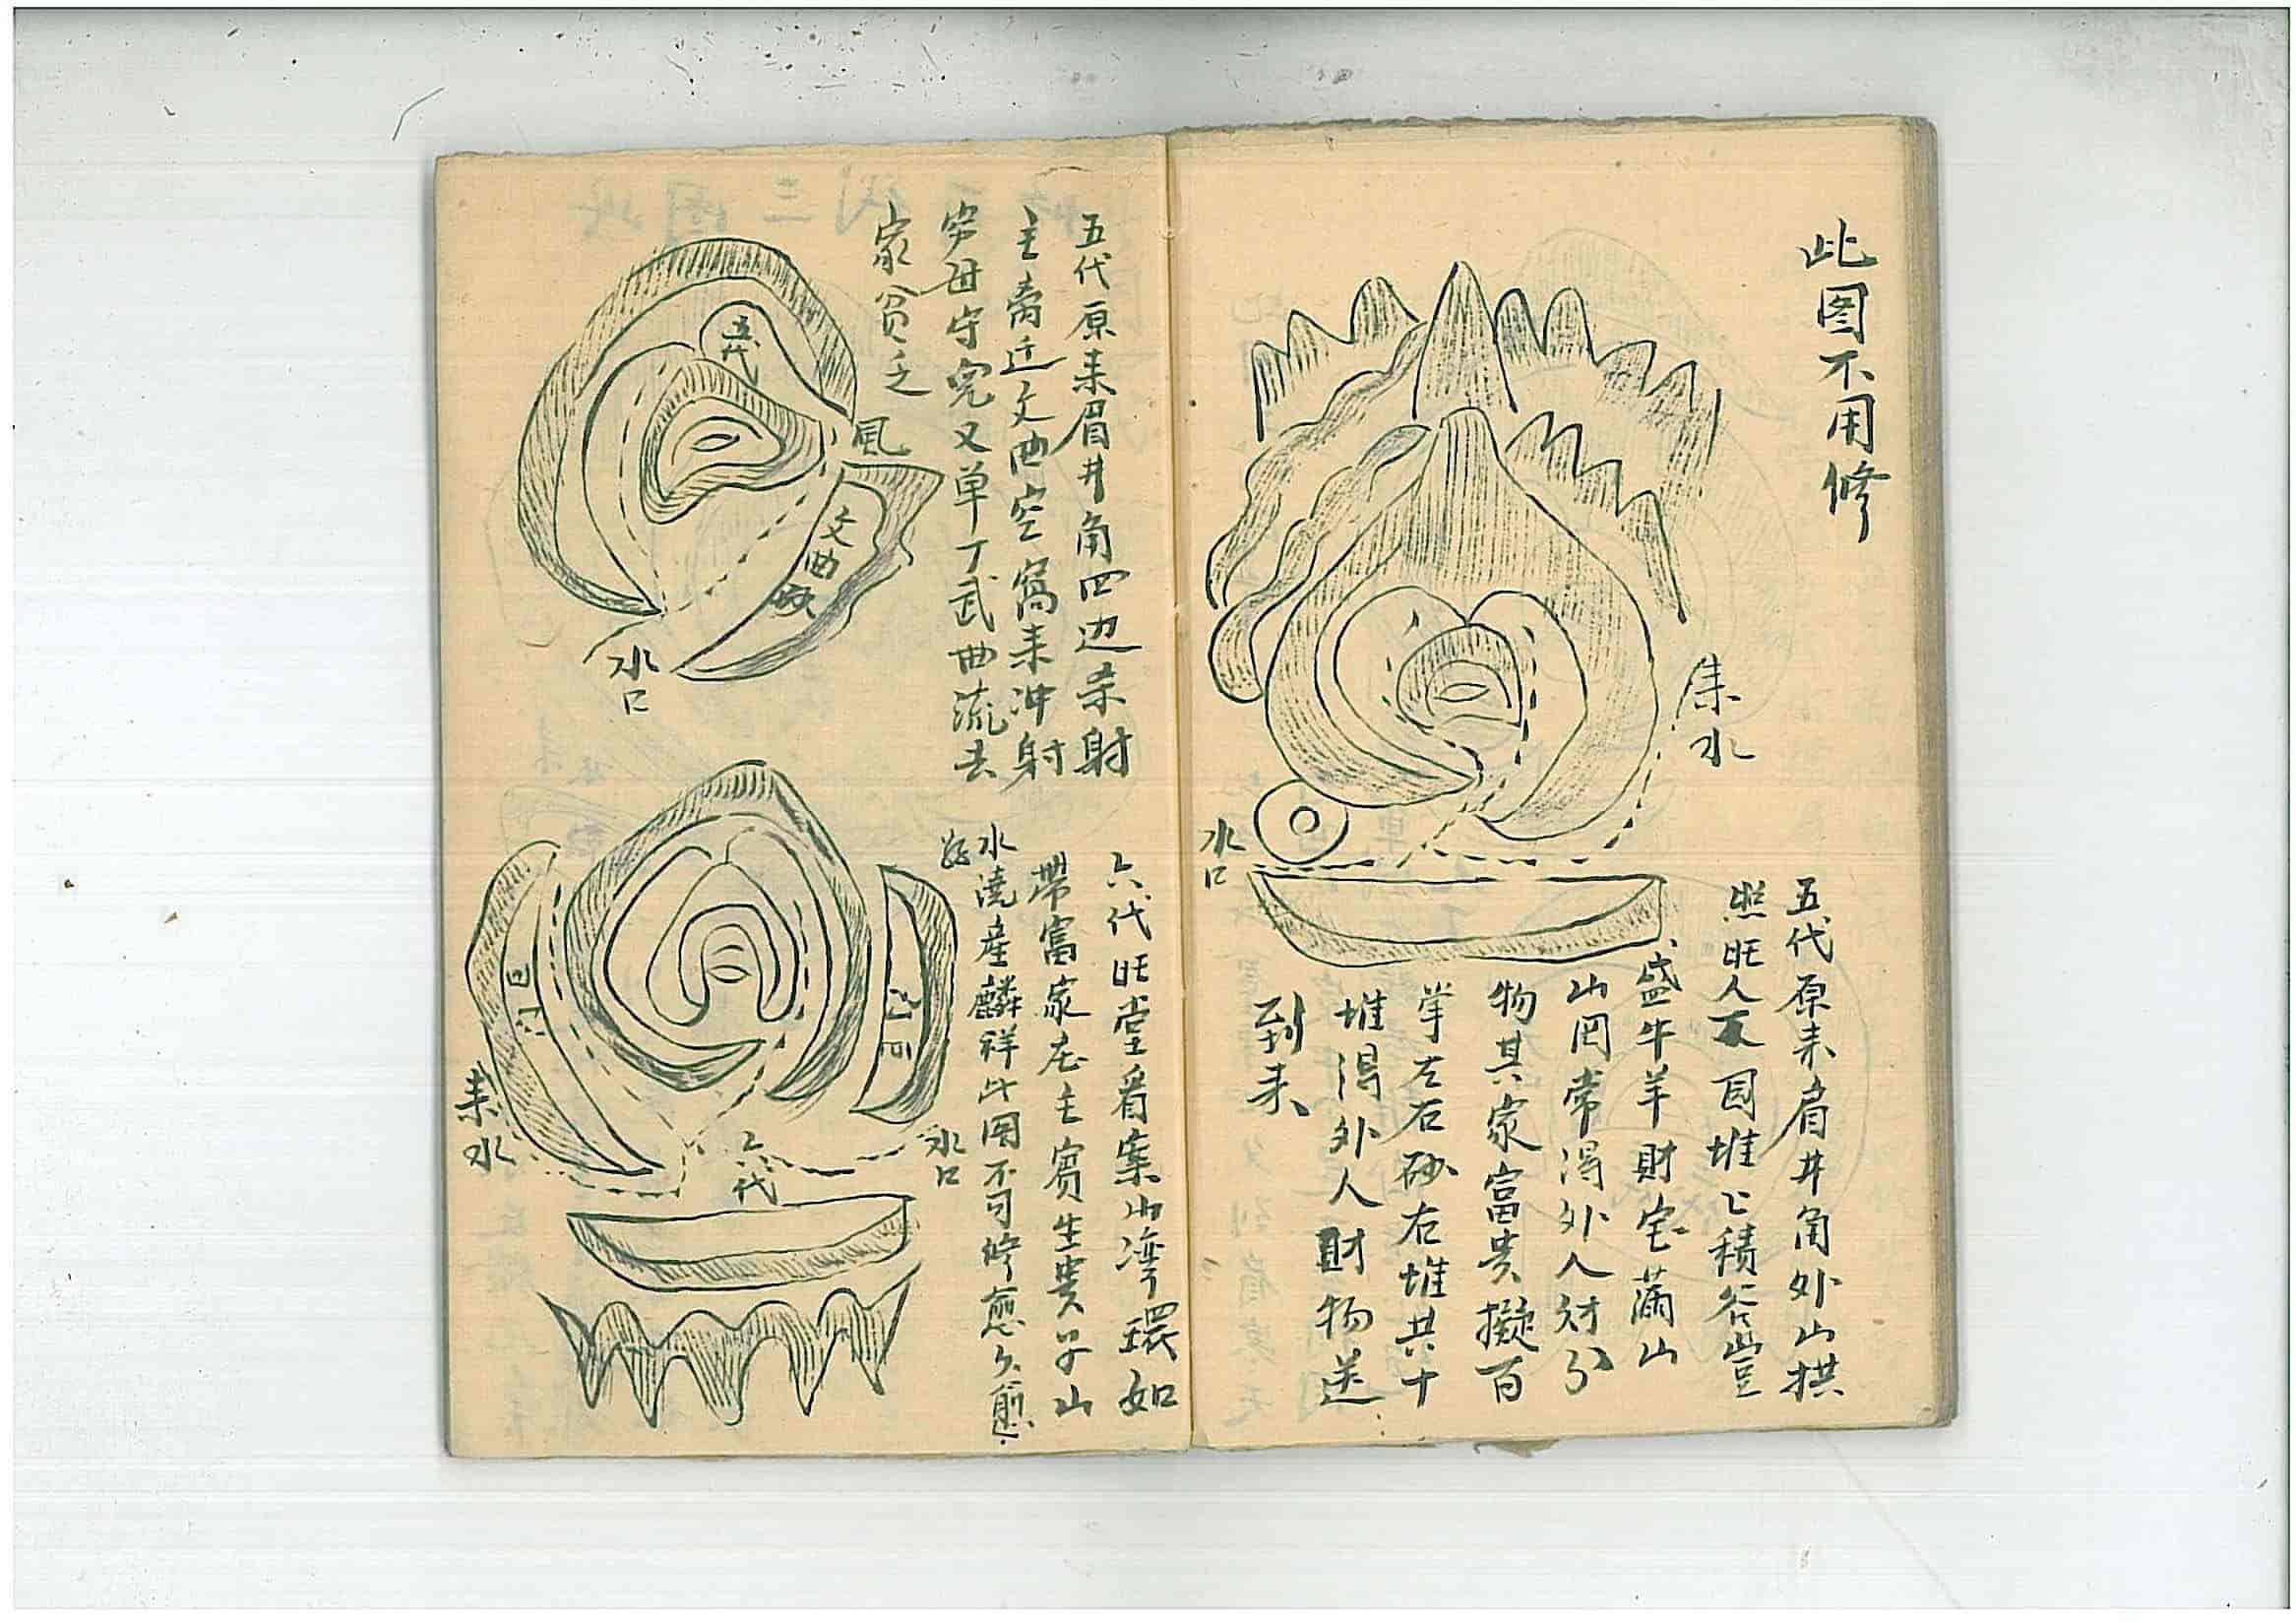 此图不用修
来水
水口
五代原来眉井角外山拱
照旺人丁圆堆〻积谷岂
盛牛羊財宝满山
山冈常得外人財分
物其家富贵擬百
掌左右砂右堆共十
堆得外人財物送
到来
五代原来眉井角四边杀射
主离迁文曲空窝来冲射
穷母守完又单丁武曲流去
家贫乏
五代
風
文曲
水口
六代旺堂看案山湾環如
帶富家庄主賓生贵子山
水澆産麟祥此图不可修愈久愈
好
来水
水口
六代